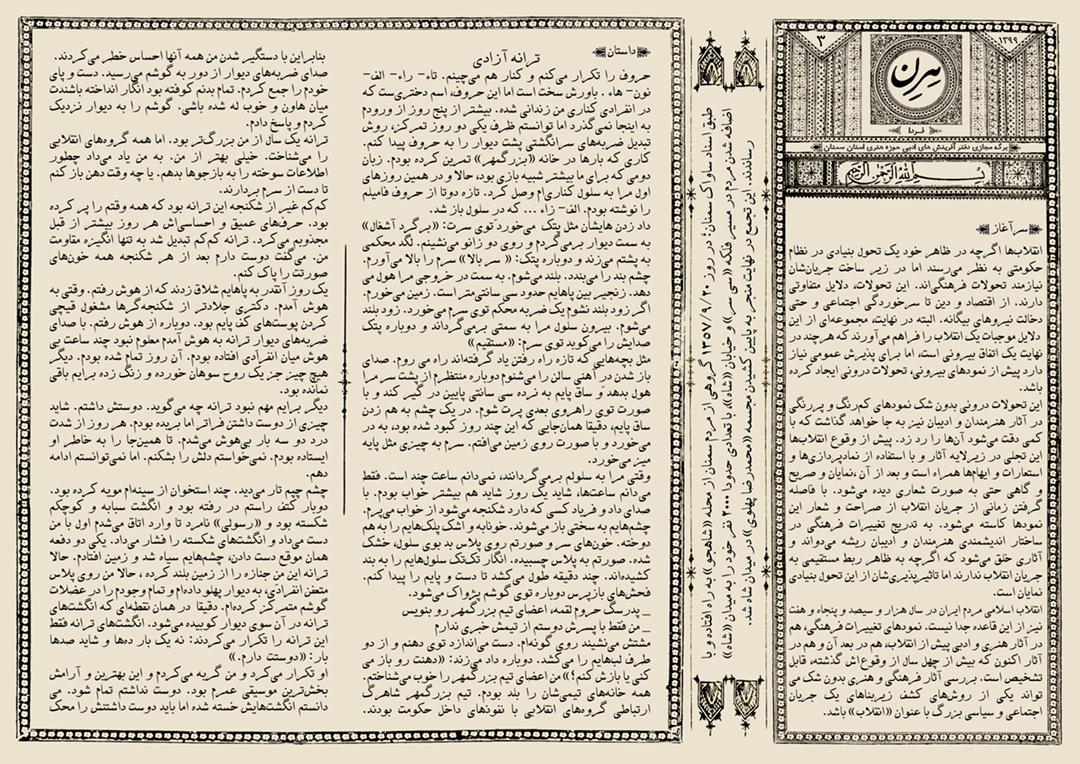 ۱۳۹۹
۳
بیرن
فردا
برگه مجازی دفتر آفرینش های ادبی حوزه هنری استان سمنان
بسم الله الرحمن الرحیم
سرآغاز
انقلاب‌ها اگرچه در ظاهر خود یک تحول بنیادی در نظام
حکومتی به نظر می‌رسند اما در زیر ساخت جریان‌شان
نیازمند تحولات فرهنگی‌اند. این تحولات، دلایل متفاوتی
دارند. از اقتصاد و دین تا سرخوردگی اجتماعی و حتی
دخالت نیروهای بیگانه. البته در نهایت، مجموعه‌ای از این
دلایل موجبات یک انقلاب را فراهم می‌آورند که هرچند در
نهایت یک اتفاق بیرونی است، اما برای پذیرش عمومی نیاز
دارد پیش از نمودهای بیرونی، تحولات درونی ایجاد کرده
باشد.
این تحولات درونی بدون شک نمودهای کم‌رنگ و پررنگی
در آثار هنرمندان و ادیبان نیز به جا خواهد گذاشت که با
کمی دقت می‌شود آن‌ها را رد زد. پیش از وقوع انقلاب‌ها
این تجلی در زیرلایه آثار و با استفاده از نمادپردازی‌ها و
استعارات و ایهام‌ها همراه است و بعد از آن، نمایان و صریح
و گاهی حتی به صورت شعاری دیده می‌شود. با فاصله
گرفتن زمانی از جریان انقلاب از صراحت و شعار این
نمودها کاسته می‌شود. به تدریج تغییرات فرهنگی در
ساختار اندیشمندی هنرمندان و ادیبان ریشه می‌دواند و
آثاری خلق می‌شود که اگرچه به ظاهر ربط مستقیمی به
جریان انقلاب ندارند اما تاثیرپذیری‌شان از این تحول بنیادی
نمایان است.
انقلاب اسلامی مردم ایران در سال هزار و سیصد و پنجاه و هفت
نیز از این قاعده جدا نیست. نمودهای تغییرات فرهنگی، هم
در آثار هنری و ادبی پیش از انقلاب، هم در بعد آن و هم در
آثار اکنون که بیش از چهل سال از وقوع‌اش گذشته، قابل
تشخیص است. بررسی آثار فرهنگی و هنری بدون شک می
تواند یکی از روش‌های کشف زیربناهای یک جریان
اجتماعی و سیاسی بزرگ با عنوان «انقلاب» باشد.
طبق اسناد ساواک سمنان: در روز ۱۳۵۷/۹/۲۰ گروهی از مردم سمنان از محله «شاهجو» به راه افتاده و با
اضافه شدن مردم در مسیر فلکه «سی سر» و خیابان «شاه»، با تعدادی حدودا ۳۰۰۰ نفر خود را به میدان «شاه»
رساندند. این تجمع در نهایت منجر به پایین کشیدن مجسمه «محمدرضا پهلوی» در میدان شاه شد.
داستان
ترانه آزادی
حروف را تکرار می‌کنم و کنار هم می‌چینم. تاء- راء- الف-
نون- هاء . باورش سخت است اما این حروف، اسم دختری‌ست که
در انفرادی کناری من زندانی شده. بیشتر از پنج روز از ورودم
به اینجا نمی‌گذرد اما توانستم ظرف یکی دو روز تمرکز، روش
تبدیل ضربه‌های سرانگشتی پشت دیوار را به حروف پیدا کنم.
کاری که بارها در خانه «بزرگمهر» تمرین کرده بودم. زبان
دومی که برای ما بیشتر شبیه بازی بود، حالا و در همین روزهای
اول مرا به سلول کناری‌ام وصل کرد. تازه دوتا از حروف فامیلم
را نوشته بودم. الف- زاء ... که در سلول باز شد.
داد زدن هایشان مثل پتک می‌خورد توی سرت: «برگرد آشغال»
به سمت دیوار برمی‌گردم و روی دو زانو می‌نشینم. لگد محکمی
به پشتم می‌زند و دوباره پتک: « سر بالا» سرم را بالا می‌آورم.
چشم بند را می‌بندد. بلند می‌شوم. به سمت در خروجی مرا هول می
دهد. زنجیر بین پاهایم حدود سی سانتی‌متر است. زمین می‌خورم.
اگر زود بلند نشوم یک ضربه محکم توی سرم می‌خورد. زود بلند
می‌شوم. بیرون سلول مرا به سمتی برمی‌گرداند و دوباره پتک
صدایش را می‌کوبد توی سرم: «مستقیم»
مثل بچه‌هایی که تازه راه رفتن یاد گرفته‌اند راه می روم. صدای
باز شدن در آهنی سالن را می‌شنوم دوباره منتظرم از پشت سر مرا
هول بدهد و ساق پایم به نرده سی سانتی پایین در گیر کند و با
صورت توی راهروی بعدی پرت شوم. در یک چشم به هم زدن
ساق پایم، دقیقا همان‌جایی که این چند روز کبود شده بود، به در
می‌خورد و با صورت روی زمین می‌افتم. سرم به چیزی مثل پایه
میز می‌خورد.
وقتی مرا به سلولم برمی‌گردانند، نمی‌دانم ساعت چند است. فقط
می‌دانم ساعت‌ها، شاید یک روز شاید هم بیشتر خواب بودم. با
صدای داد و فریاد کسی که دارد شکنجه می‌شود از خواب می‌پرم.
چشم‌هایم به سختی باز می‌شوند. خونابه و اشک پلک‌هایم را به هم
دوخته. خون‌های سر و صورتم روی پلاس بد بوی سلول، خشک
شده. صورتم به پلاس چسبیده. انگار تک‌تک سلول‌هایم را به بند
کشیده‌اند. چند دقیقه طول می‌کشد تا دست و پایم را پیدا کنم.
فحش‌های بازپرس دوباره توی گوشم پژواک می‌شود.
_ پدرسگ حروم لقمه، اعضای تیم بزرگمهر رو بنویس
_ من فقط با پسرش دوستم از تیمش خبری ندارم
مشتش می‌نشیند روی گونه‌ام. دست می‌اندازد توی دهنم و از دو
طرف لب‌هایم را می‌کشد. دوباره داد می‌زند: «دهنت رو باز می
کنی یا بازش کنم؟» من اعضای تیم بزرگمهر را خوب می‌شناختم.
همه خانه‌های تیمی‌شان را بلد بودم. تیم بزرگمهر شاهرگ
ارتباطی گروه‌های انقلابی با نفوذهای داخل حکومت بودند.
بنابراین با دستگیر شدن من همه آنها احساس خطر می‌کردند.
صدای ضربه‌های دیوار از دور به گوشم می‌رسید. دست و پای
خودم را جمع کردم. تمام بدنم کوفته بود انگار انداخته باشندت
میان هاون و خوب له شده باشی. گوشم را به دیوار نزدیک
کردم و پاسخ دادم.
ترانه یک سال از من بزرگ‌تر بود. اما همه گروه‌های انقلابی
را می‌شناخت. خیلی بهتر از من. به من یاد می‌داد چطور
اطلاعات سوخته را به بازجوها بدهم. یا چه وقت دهن باز کنم
تا دست از سرم بردارند.
کم‌کم غیر از شکنجه این ترانه بود که همه وقتم را پر کرده
بود. حرف‌های عمیق و احساسی‌اش هر روز بیشتر از قبل
مجذوبم می‌کرد. ترانه کم‌کم تبدیل شد به تنها انگیزه مقاومت
من. می‌گفت دوست دارم بعد از هر شکنجه همه خون‌های
صورتت را پاک کنم.
یک روز آنقدر به پاهایم شلاق زدند که از هوش رفتم. وقتی به
هوش آمدم. دکتری جلادتر از شکنجه‌گرها مشغول قیچی
کردن پوست‌های کف پایم بود. دوباره از هوش رفتم. با صدای
ضربه‌های دیوار ترانه به هوش آمدم معلوم نبود چند ساعت بی
هوش میان انفرادی افتاده بودم. آن روز تمام شده بودم. دیگر
هیچ چیز جز یک روح سوهان خورده و زنگ زده برایم باقی
نمانده بود.
دیگر برایم مهم نبود ترانه چه می‌گوید. دوستش داشتم. شاید
چیزی از دوست داشتن فراتر اما بریده بودم. هر روز از شدت
درد دو سه بار بی‌هوش می‌شدم. تا همین‌جا را به خاطر او
ایستاده بودم. نمی‌خواستم دلش را بشکنم. اما نمی‌توانستم ادامه
دهم.
چشم چپم تار می‌دید. چند استخوان از سینه‌ام مویه کرده بود.
دوبار کتف راستم در رفته بود و انگشت سبابه و کوچکم
شکسته بود و «رسولی» نامرد تا وارد اتاق می‌شدم اول با من
دست می‌داد و انگشت‌های شکسته را فشار می‌داد. یکی دو دفعه
همان موقع دست دادن، چشم‌هایم سیاه شد و زمین افتادم. حالا
ترانه این من جنازه را از زمین بلند کرده ، حالا من روی پلاس
متعفن انفرادی، به دیوار پهلو داده‌ام و تمام وجودم را در عضلات
گوشم متمرکز کرده‌ام. دقیقا در همان نقطه‌ای که انگشت‌های
ترانه در آن سوی دیوار کوبیده می‌شود. انگشت‌های ترانه فقط
این ترانه را تکرار می‌کردند: نه یک بار ده‌ها و شاید صدها
بار: «دوستت دارم.»
او تکرار می‌کرد و من گریه می‌کردم و این بهترین و آرامش
بخش‌ترین موسیقی عمرم بود. دوست نداشتم تمام شود. می
دانستم انگشت‌هایش خسته شده اما باید دوست داشتنش را محک